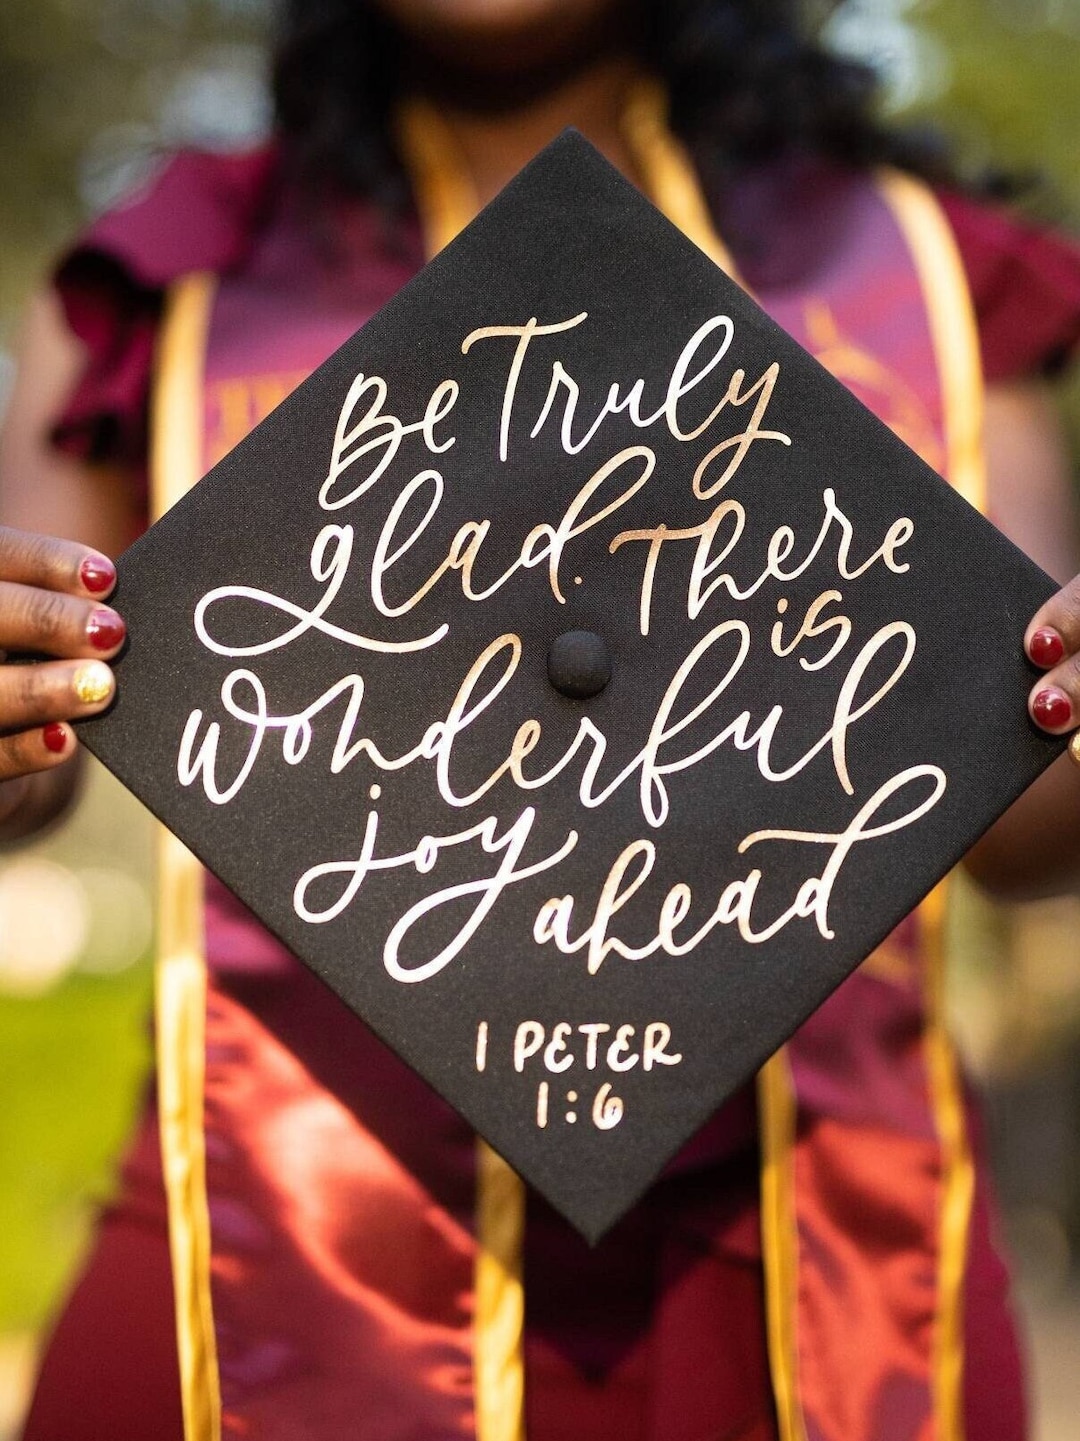 Be Truly
glad. There
is
wonderful
joy
ahead
1 PETER
1:6